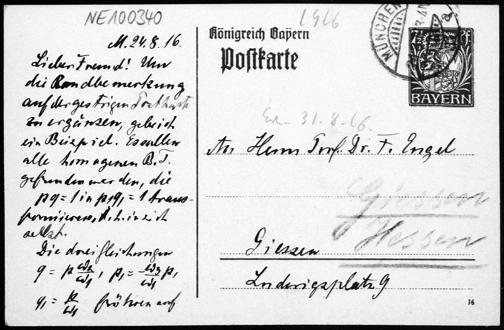 NE100340
1916
M. 24.8.16.
Lieber Freund! Um
die Randbemerkung
auf der gestrigen Postkarte
zu ergänzen, gebe ich
ein Beispiel. Es sollen
alle homogenen B.T.
gefunden werden, die
pq = 1 in p₁q₁ = 1 transformieren,
d.h. in sich
selbst.
Die drei Gleichungen
q₁ = führen auf
Königreich Bayern
Postkarte
MÜNCHEN
BAYERN
31-8-16.
An Herrn Prof. Dr. F. Engel
Giessen
Hessen
Giessen
Ludwigsplatz 9
16